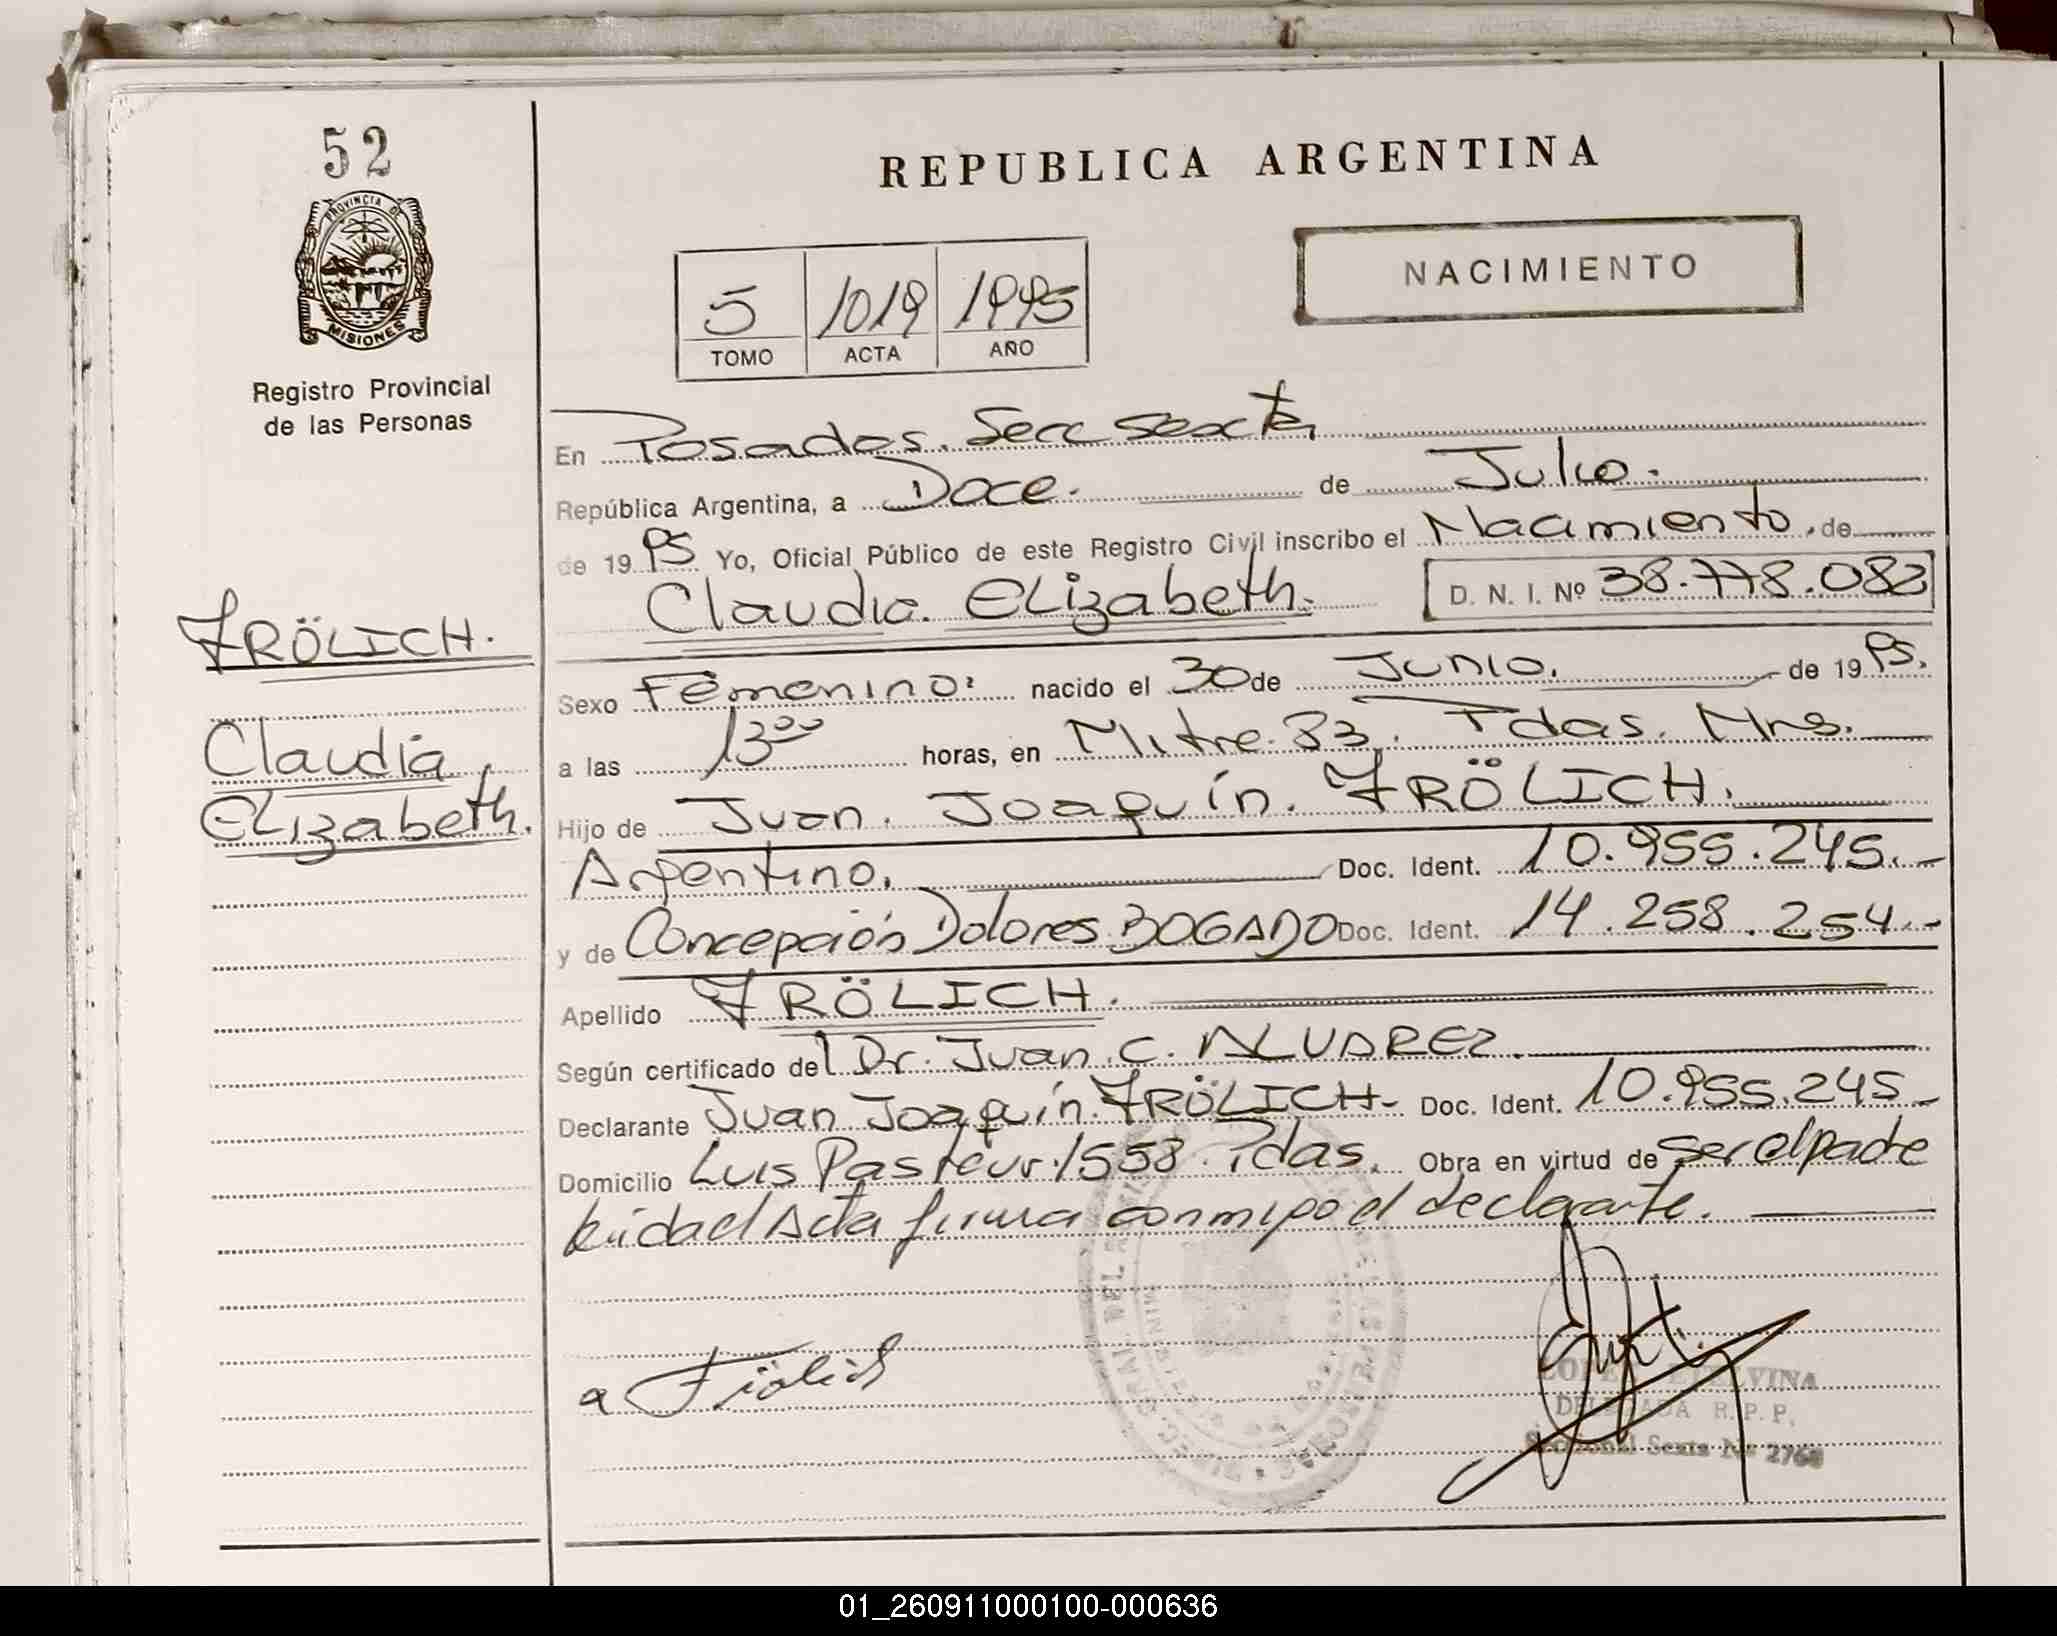 52
PROVINCIA DE
MISIONES
Registro Provincial
de las Personas
REPUBLICA ARGENTINA
NACIMIENTO
5 1019 1995
TOMO ACTA AÑO
En Posadas. Secc Sexta
República Argentina, a Doce. de Julio.
de 19 95 Yo, Oficial Público de este Registro Civil inscribo el Nacimiento, de
Claudia. Elizabeth. D. N. I. Nº 38.778.083
FRÖLICH.
Claudia
Elizabeth.
Sexo Femenino: nacido el 30 de Junio. de 19 95.
a las 13 00 horas, en Mitre 83. Pdas. Mns.
Hijo de Juan. Joaquín. FRÖLICH.
Argentino. Doc. Ident. 10.955.245.-
y de Concepción Dolores BOGADO Doc. Ident. 14.258.254.-
Apellido FRÖLICH.
Según certificado del Dr. Juan. C. ALVAREZ.
Declarante Juan Joaquín. FRÖLICH- Doc. Ident. 10.955.245-
Domicilio Luis Pasteur. 1558. Pdas. Obra en virtud de ser el padre
Leida el Acta firma conmigo el declarante.
a Frölich
DELEGADA R. P. P,
Seccional Sexta Nº 2768
01_260911000100-000636